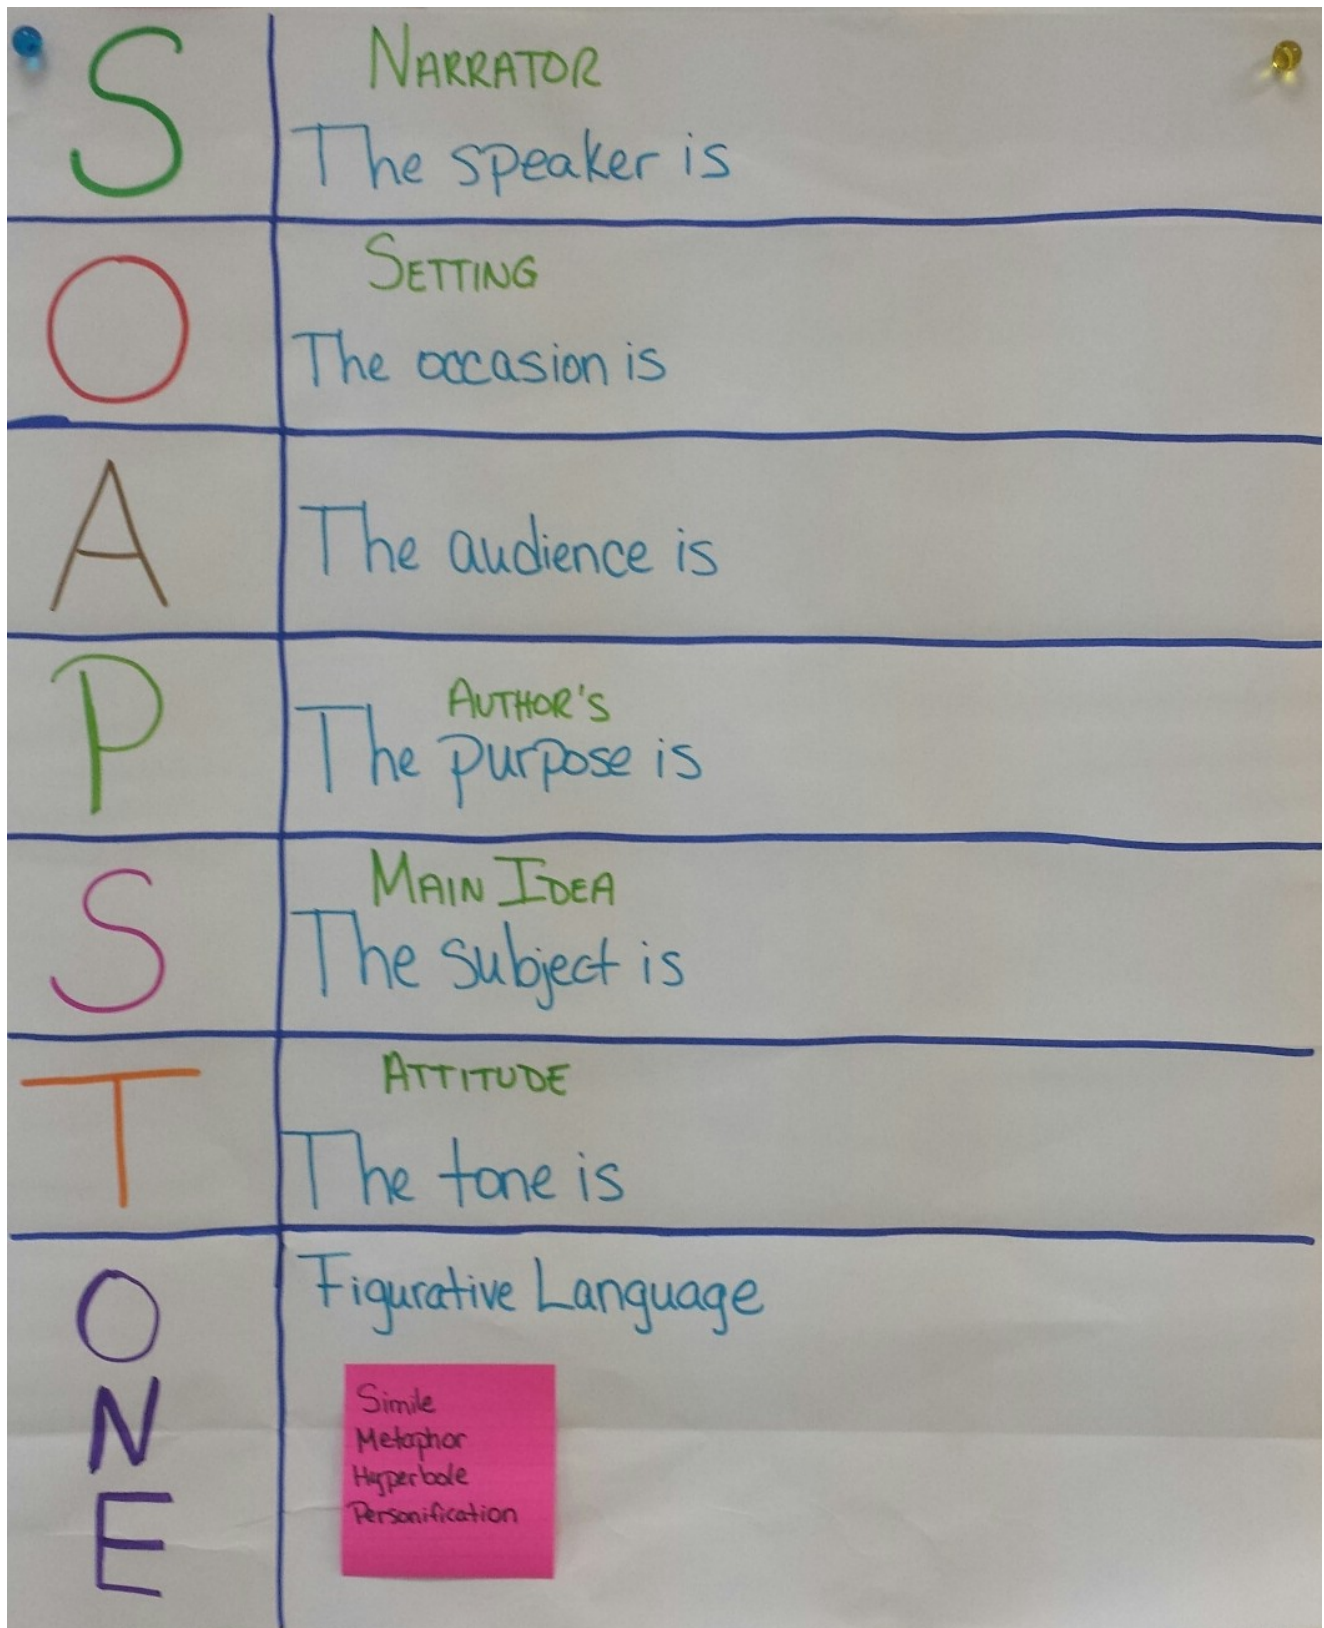 S
NARRATOR
The speaker is
O
SETTING
The occasion is
A
The audience is
P
AUTHOR'S
The purpose is
S
MAIN IDEA
The subject is
T
ATTITUDE
The tone is
O
N
E
Figurative Language
Simile
Metaphor
Hyperbole
Personification